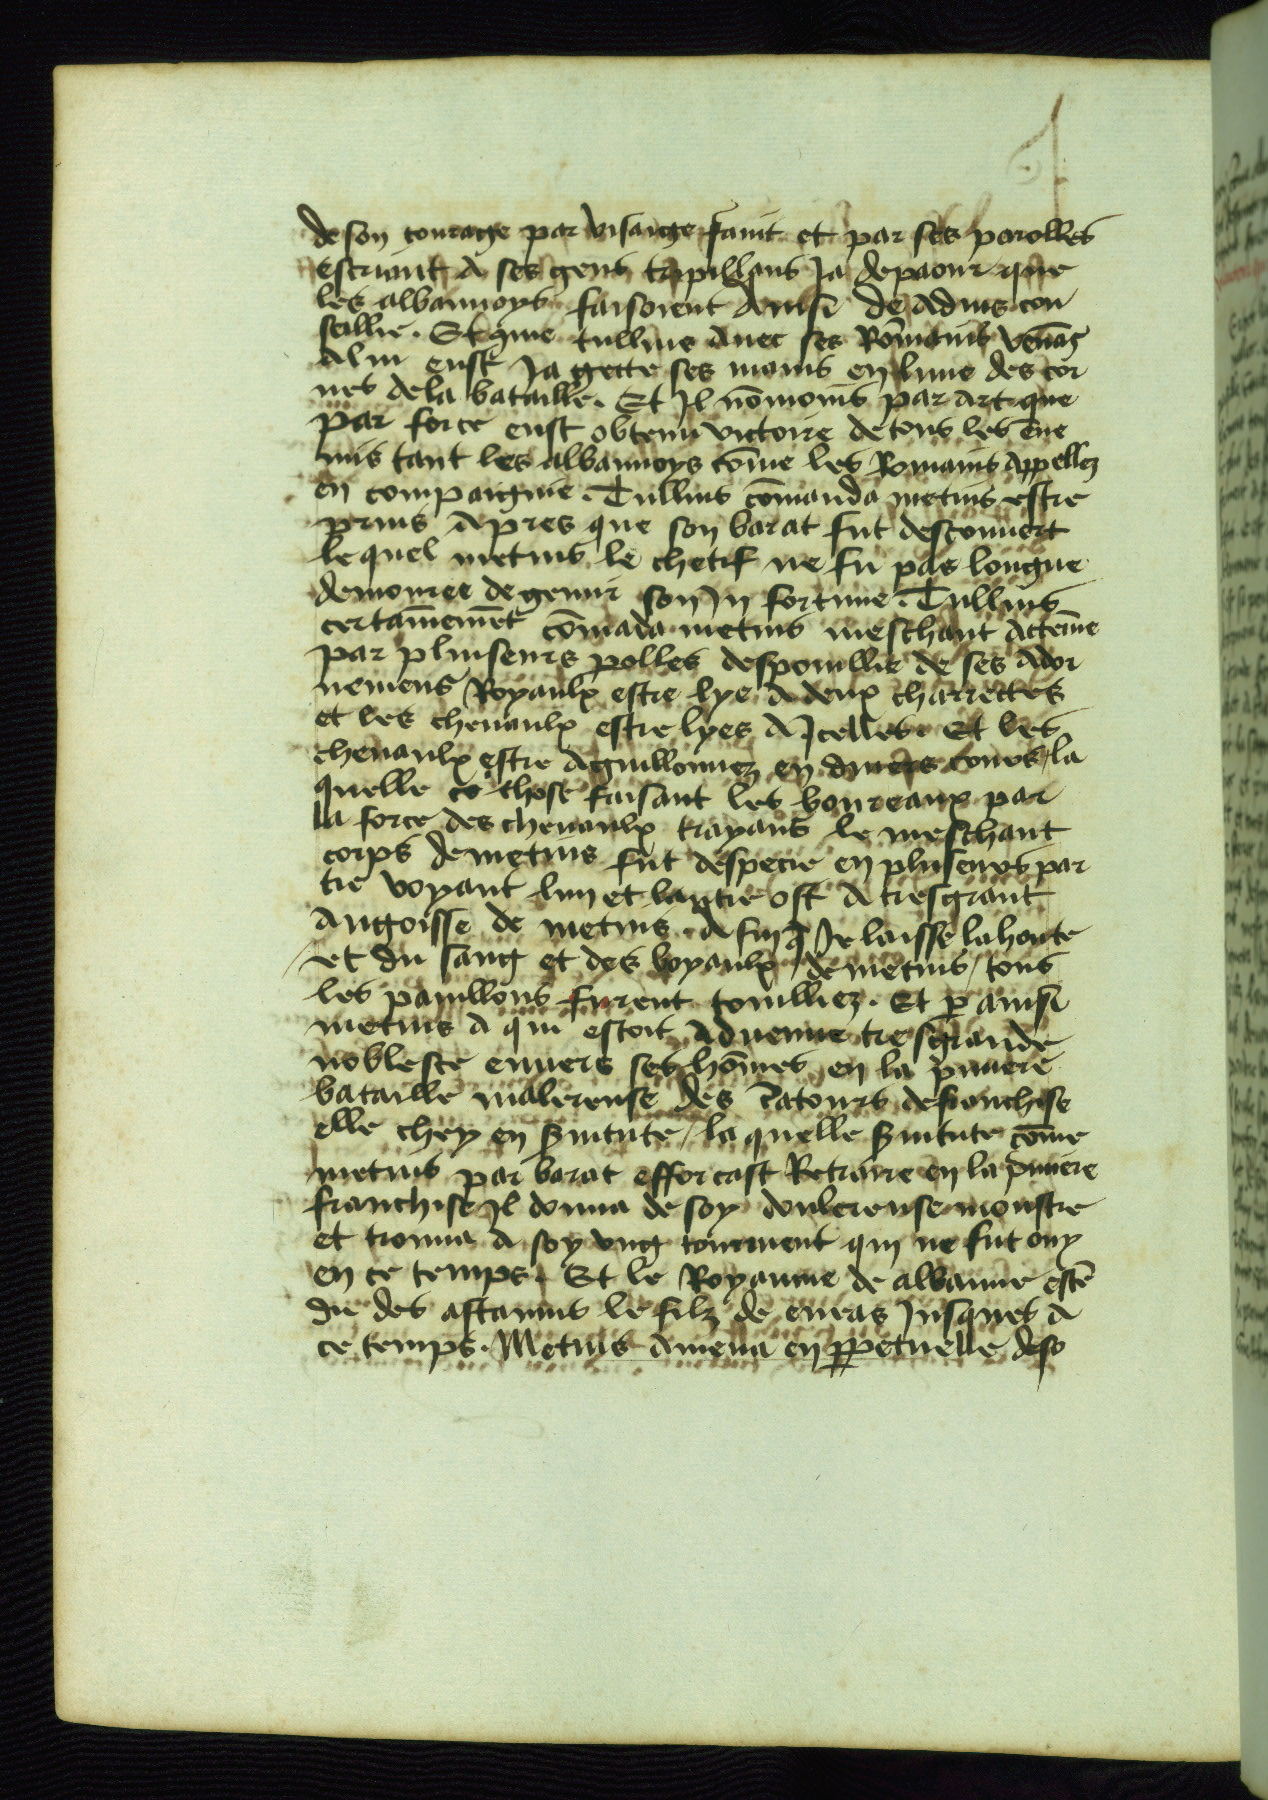 de son courage par visaige faint et par ses parolles
escriant a ses gens trapillans Ja de paour que
les albannoys faisoient ainsi de aduis con
seillie. Et q̄me tullius auec ses Rōmains venās
a lui eust Ja gette ses mains en lune des cor
nes de la bataille. Et Il nōmoins par art que
par force eust obtenu victoire de tous les ēne
mis tant les albannoys cōme les Romains appellez
en compaignie. Tullius cōmanda metius estre
prins Apres que son barat fut descouuert
le quel metius le chetif ne fu pas longue
demouree de gemir son In fortune. Tullius
certainemēt cōmāda metius meschant
par pluiseurs polles despouillie de ses ador
nemens Royaulx estre lye a deux charrettes
et les cheuaulx estre lyes a Jcelles. Et les
cheuaulx estre aguillonnez en diuers cours / la
quelle chose faisant les boureaux par
la force des cheuaulx trayans le meschant
corps de metius fut despecie en pluseurs par
tie voyant lun et lautre ost a tresgrant
Angoisse de metius. A fin q̄ Je laisse la honte
et du sang et des boyaulx de metius / tous
les pauillons furent touilliez. Et p̄ ainsi
metius a qui estoit aduenue tresgrande
noblesce enuers ses hōmes en la p̄miere
bataille malereuse des c̄atours de franchise
elle chey en s̄uitute / la quelle s̄uitute cōme
metius par barat efforcast Retraire en la p̄miere
franchise Il donna de soy doulereuse monstre
et trouua a soy vng tourment qui ne fut ouy
en ce temps. Et le Royaume de albanie estē
du des astanius le filz de eneas Jusques a
ce temps. Metius amena en ppetuelle deso